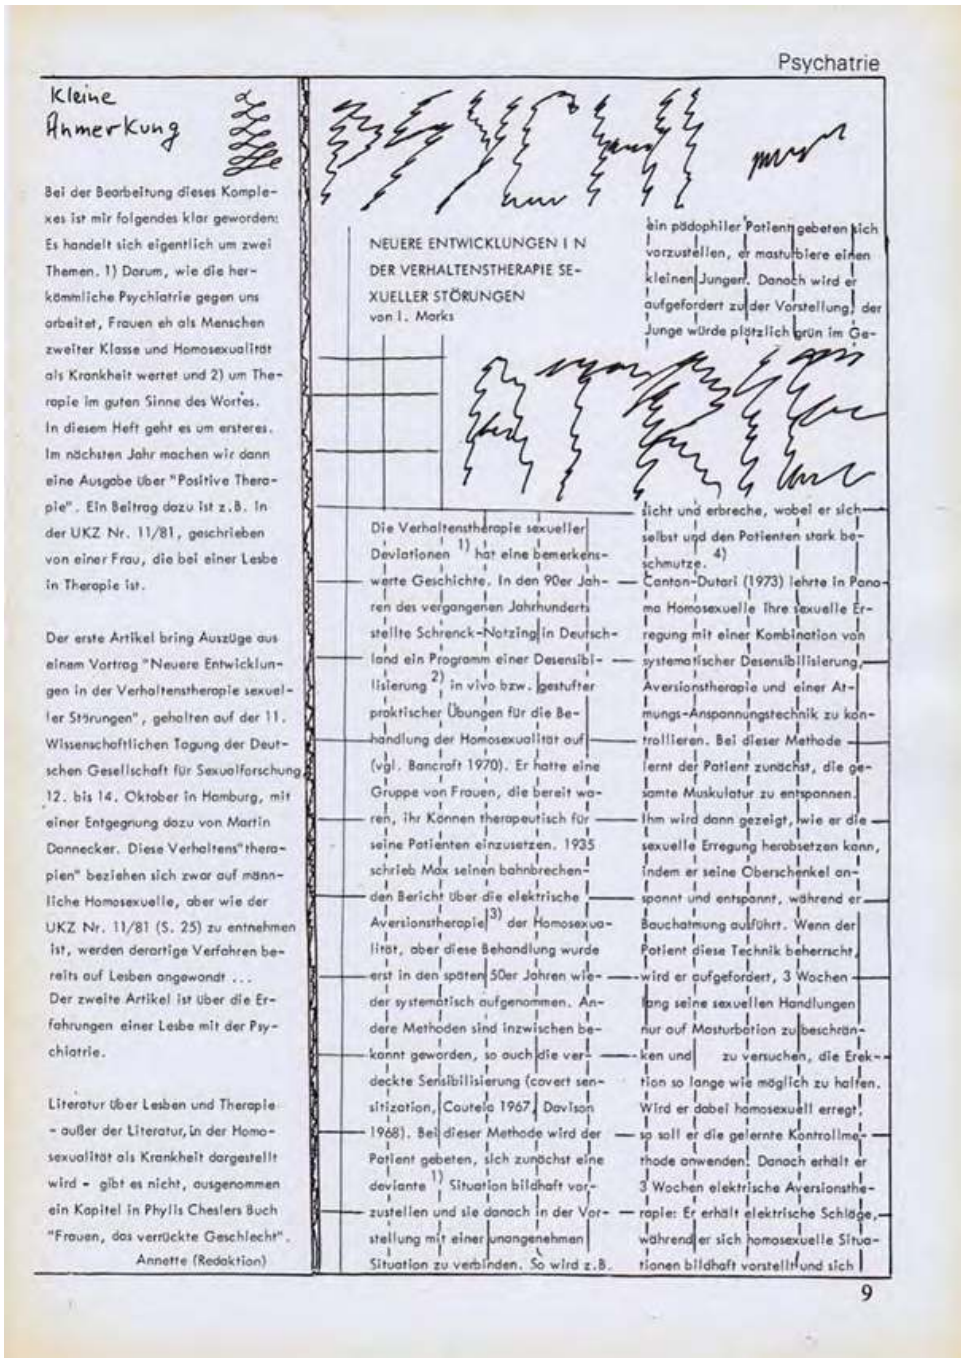 Psychatrie
Kleine
Anmerkung
Bei der Bearbeitung dieses Komple-
xes ist mir folgendes klar geworden:
Es handelt sich eigentlich um zwei
Themen. 1) Darum, wie die her-
kömmliche Psychiatrie gegen uns
arbeitet, Frauen eh als Menschen
zweiter Klasse und Homosexualität
als Krankheit wertet und 2) um The-
rapie im guten Sinne des Wortes.
In diesem Heft geht es um ersteres.
Im nächsten Jahr machen wir dann
eine Ausgabe über "Positive Thera-
pie". Ein Beitrag dazu ist z.B. in
der UKZ Nr. 11/81, geschrieben
von einer Frau, die bei einer Lesbe
in Therapie ist.
Der erste Artikel bring Auszüge aus
einem Vortrag "Neuere Entwicklun-
gen in der Verhaltenstherapie sexuel-
ler Störungen", gehalten auf der 11.
Wissenschaftlichen Tagung der Deut-
schen Gesellschaft für Sexualforschung
12. bis 14. Oktober in Hamburg, mit
einer Entgegnung dazu von Martin
Dannecker. Diese Verhaltens"thera-
pien" beziehen sich zwar auf männ-
liche Homosexuelle, aber wie der
UKZ Nr. 11/81 (S. 25) zu entnehmen
ist, werden derartige Verfahren be-
reits auf Lesben angewandt ...
Der zweite Artikel ist über die Er-
fahrungen einer Lesbe mit der Psy-
chiatrie.
Literatur über Lesben und Therapie
- außer der Literatur, in der Homo-
sexualität als Krankheit dargestellt
wird - gibt es nicht, ausgenommen
ein Kapitel in Phylis Cheslers Buch
"Frauen, das verrückte Geschlecht".
Annette (Redaktion)
NEUERE ENTWICKLUNGEN I N
DER VERHALTENSTHERAPIE SE-
XUELLER STÖRUNGEN
von I. Marks
Die Verhaltenstherapie sexueller
Deviationen 1) hat eine bemerkens-
werte Geschichte. In den 90er Jah-
ren des vergangenen Jahrhunderts
stellte Schrenck-Notzing in Deutsch-
land ein Programm einer Desensibi-
lisierung 2) in vivo bzw. gestufter
praktischer Übungen für die Be-
handlung der Homosexualität auf
(vgl. Bancroft 1970). Er hatte eine
Gruppe von Frauen, die bereit wa-
ren, ihr Können therapeutisch für
seine Patienten einzusetzen. 1935
schrieb Max seinen bahnbrechen-
den Bericht über die elektrische
Aversionstherapie 3) der Homosexua-
lität, aber diese Behandlung wurde
erst in den späten 50er Jahren wie-
der systematisch aufgenommen. An-
dere Methoden sind inzwischen be-
kannt geworden, so auch die ver-
deckte Sensibilisierung (covert sen-
sitization, Cautela 1967, Davison
1968). Bei dieser Methode wird der
Patient gebeten, sich zunächst eine
deviante 1) Situation bildhaft vor-
zustellen und sie danach in der Vor-
stellung mit einer unangenehmen
Situation zu verbinden. So wird z.B.
ein pädophiler Patient gebeten sich
vorzustellen, er masturbiere einen
kleinen Jungen. Danach wird er
aufgefordert zu der Vorstellung, der
Junge würde plötzlich grün im Ge-
sicht und erbreche, wobei er sich
selbst und den Patienten stark be-
schmutze. 4)
Canton-Dutari (1973) lehrte in Pana-
ma Homosexuelle ihre sexuelle Er-
regung mit einer Kombination von
systematischer Desensibilisierung,
Aversionstherapie und einer At-
mungs-Anspannungstechnik zu kon-
trollieren. Bei dieser Methode
lernt der Patient zunächst, die ge-
samte Muskulatur zu entspannen.
Ihm wird dann gezeigt, wie er die
sexuelle Erregung herabsetzen kann,
indem er seine Oberschenkel an-
spannt und entspannt, während er
Bauchatmung ausführt. Wenn der
Patient diese Technik beherrscht,
wird er aufgefordert, 3 Wochen
lang seine sexuellen Handlungen
nur auf Masturbation zu beschrän-
ken und zu versuchen, die Erek-
tion so lange wie möglich zu halten.
Wird er dabei homosexuell erregt,
so soll er die gelernte Kontrollme-
thode anwenden. Danach erhält er
3 Wochen elektrische Aversionsthe-
rapie: Er erhält elektrische Schläge,
während er sich homosexuelle Situa-
tionen bildhaft vorstellt und sich
9